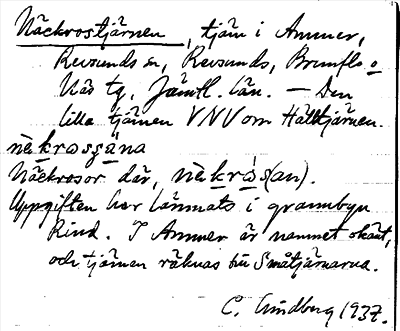 Näckrostjärnen, tjärn i Ammer,
Revsunds sn, Revsunds, Brunflo o
Näs tg, Jämtl. län. — Den
lilla tjärnen VNV om Hälltjärnen.
nèkrosşäna
Näckrosor där, nèkrós(an).
Uppgiften har lämnats i grannbyn
Rind. I Ammer är namnet okänt,
och tjärnen räknas till Småtjärnarna.
C. Lindberg 1937.